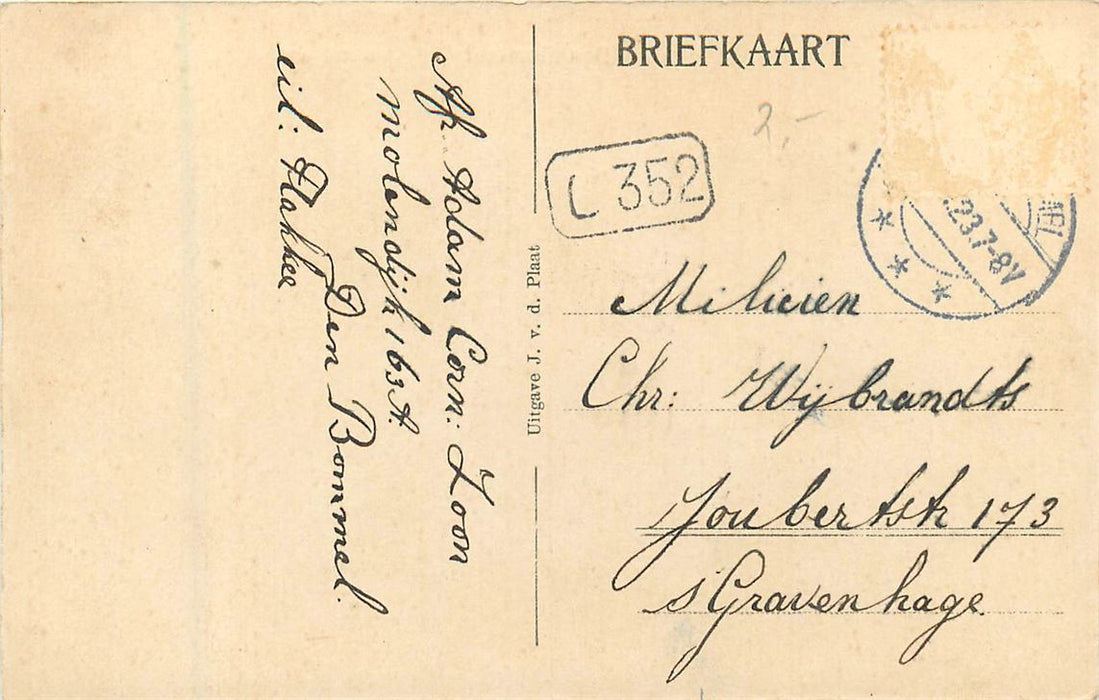 BRIEFKAART
2,-
L 352
23.7-8V
Milicien
Chr: Wijbrandts
Joubertstr 173
s Gravenhage
Uitgave J. v. d. Plaat
Afz. Adam Corn: Zoon
Molendijk 163A.
Den Bommel.
eil: Flakkee